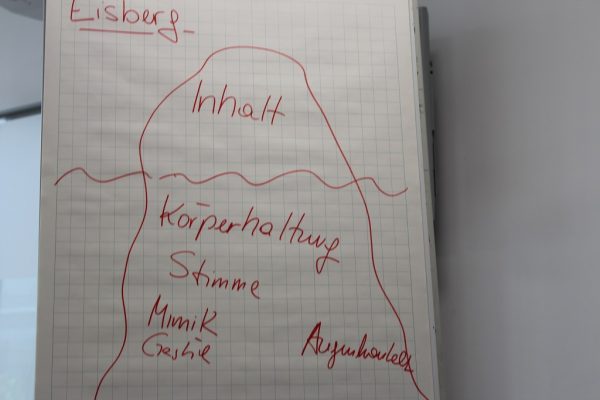 Eisberg
Inhalt
Körperhaltung
Stimme
Mimik
Gestik
Augenkontakt